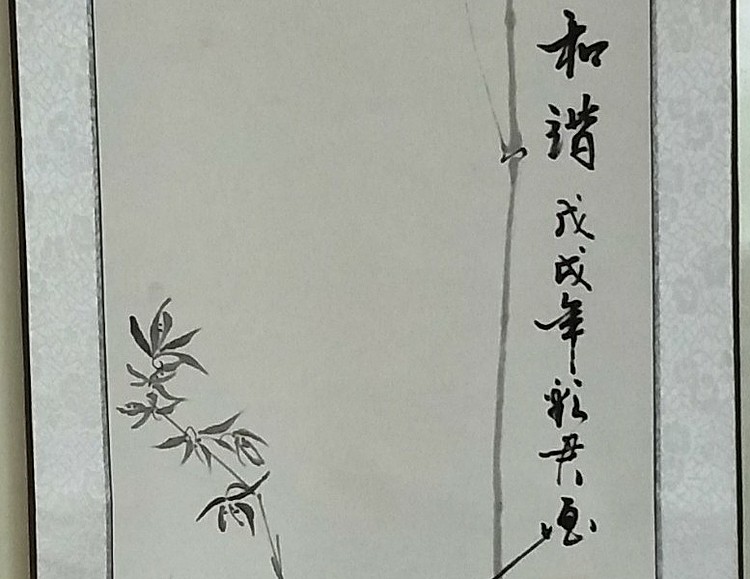 和谐 戊戌年 彩君画